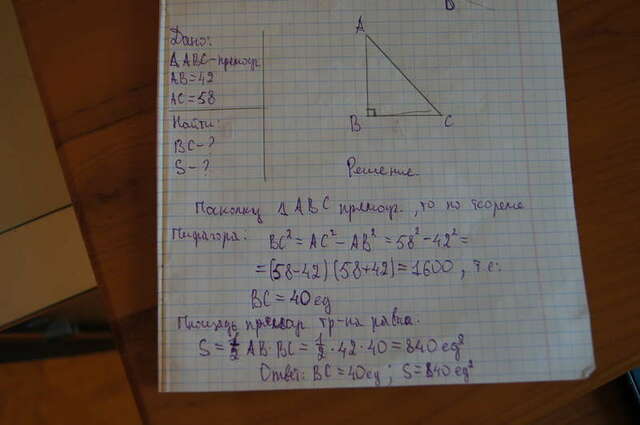 D
Дано:
Δ ABC – прямоуг.
AB = 42
AC = 58
Найти:
BC – ?
S – ?
A
B
C
Решение.
Поскольку Δ ABC прямоуг., то по теореме
Пифагора: BC² = AC² – AB² = 58² – 42² =
= (58–42) (58+42) = 1600, т.е.
BC = 40 ед
Площадь прямоуг тр-на равна.
S = 1/2 AB·BC = 1/2 · 42 · 40 = 840 ед²
Ответ: BC = 40 ед ; S = 840 ед²